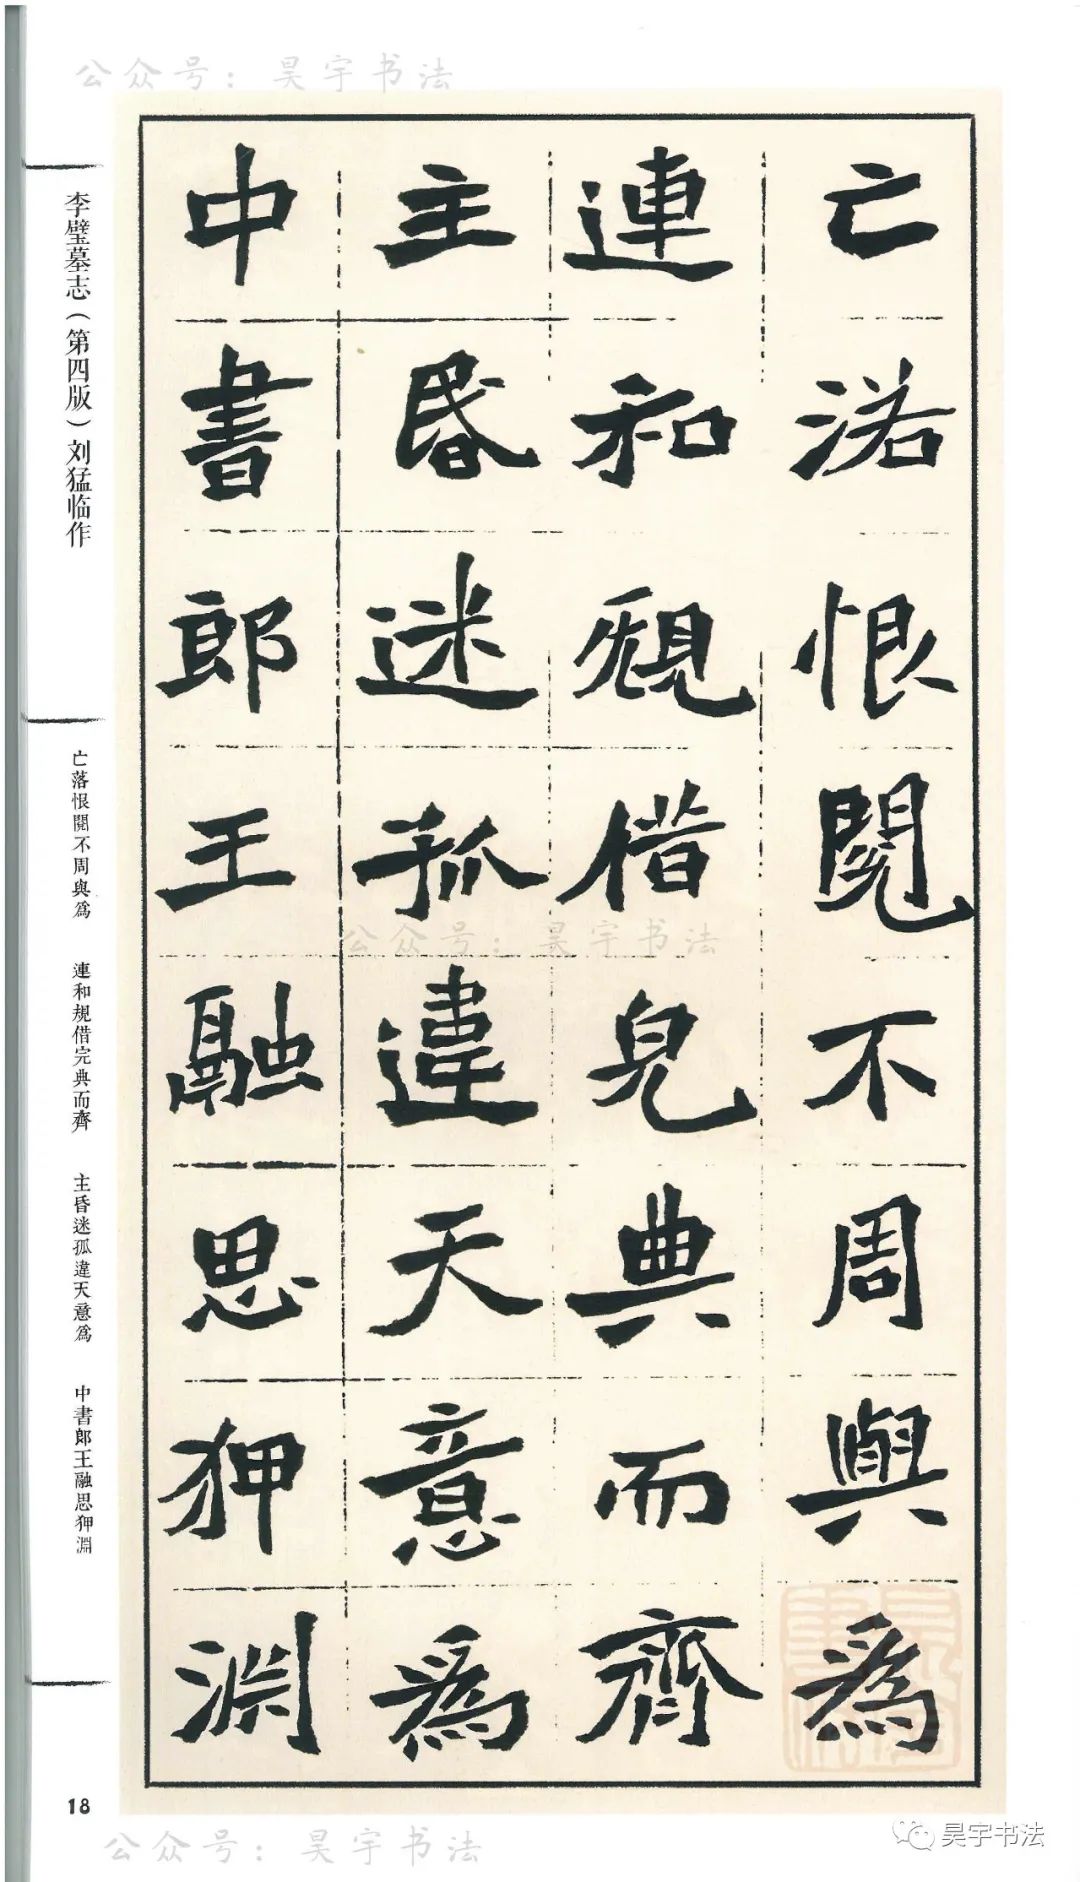 公众号：昊宇书法
亡落恨閲不周與為
連和規借完典而齊
主昏迷孤違天意為
中書郎王融思狎淵
李璧墓志（第四版）刘猛临作
亡落恨閲不周與為
連和規借完典而齊
主昏迷孤違天意為
中書郎王融思狎淵
公众号：昊宇书法
18
公众号：昊宇书法
昊宇书法